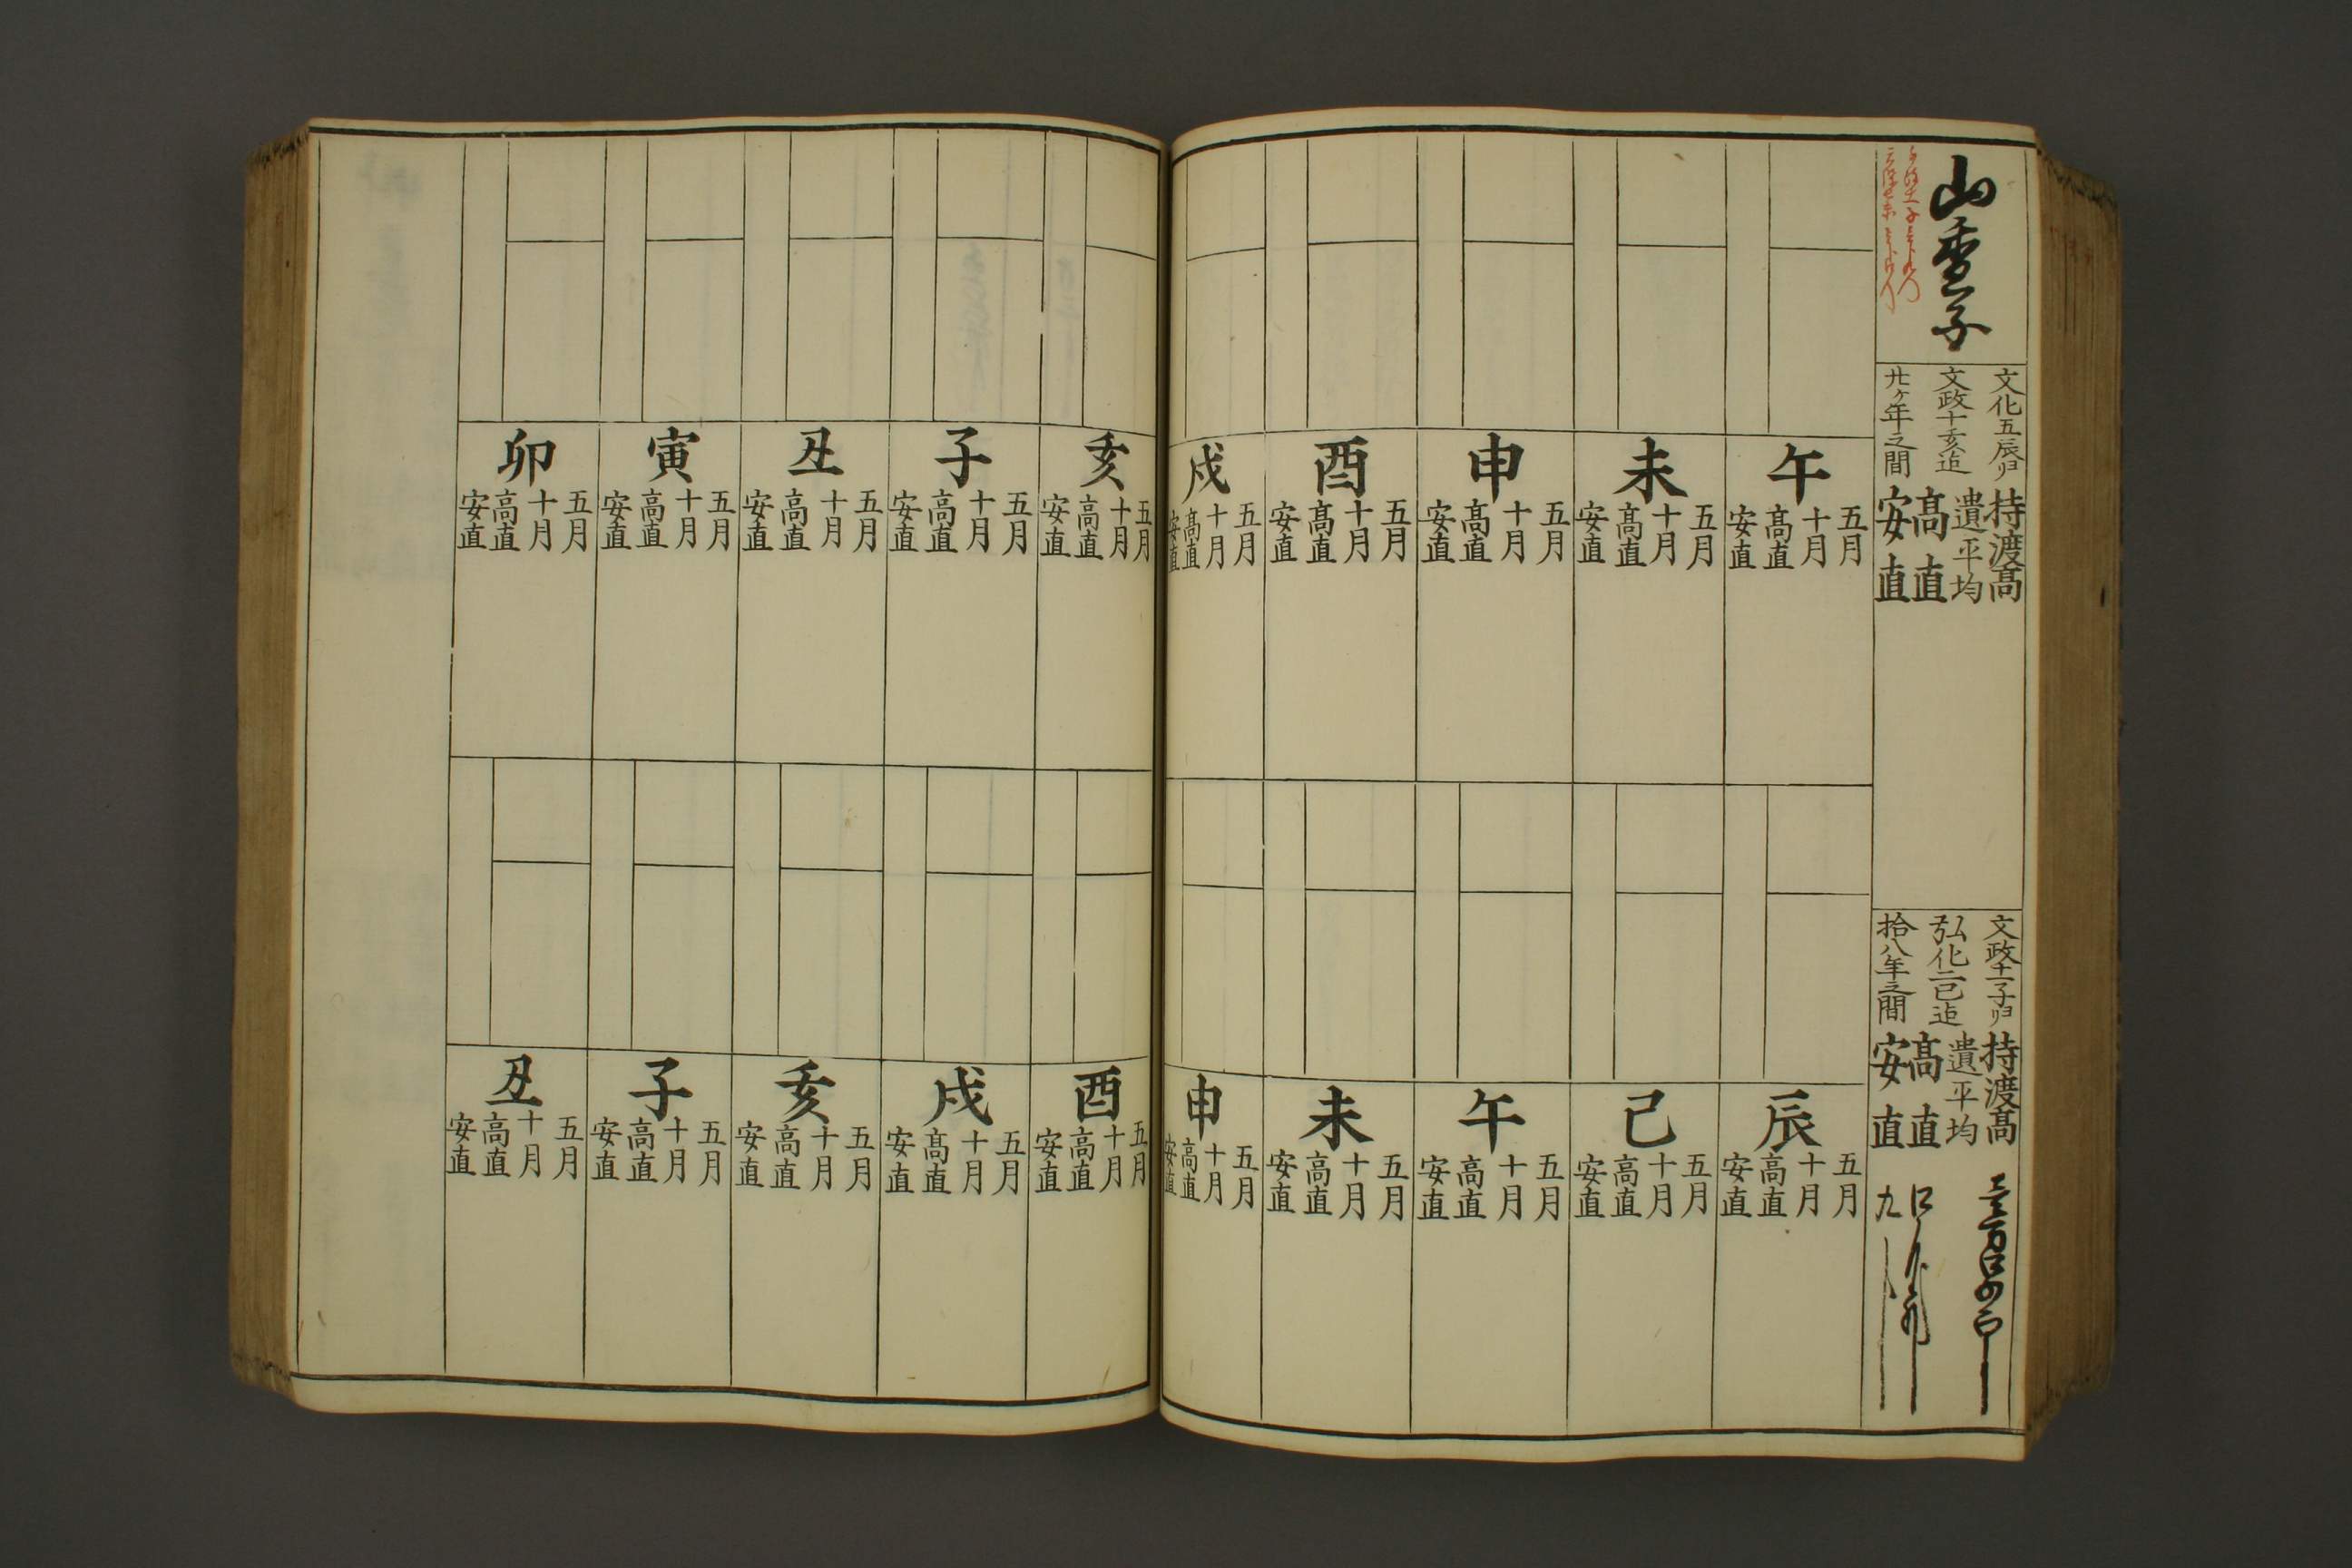 山査子
文化五辰ヨリ
文政十亥迠
廿ケ年之間
持渡髙
遺平均
髙直
安直
文政十一子ヨリ
弘化二巳迠
拾八年之間
持渡髙
遺平均
髙直
安直
午
五月
十月
髙直
安直
未
五月
十月
髙直
安直
申
五月
十月
髙直
安直
酉
五月
十月
髙直
安直
戌
五月
十月
髙直
安直
亥
五月
十月
髙直
安直
子
五月
十月
髙直
安直
丑
五月
十月
髙直
安直
寅
五月
十月
髙直
安直
卯
五月
十月
髙直
安直
辰
五月
十月
髙直
安直
己
五月
十月
髙直
安直
午
五月
十月
髙直
安直
未
五月
十月
髙直
安直
申
五月
十月
髙直
安直
酉
五月
十月
髙直
安直
戌
五月
十月
髙直
安直
亥
五月
十月
髙直
安直
子
五月
十月
髙直
安直
丑
五月
十月
髙直
安直